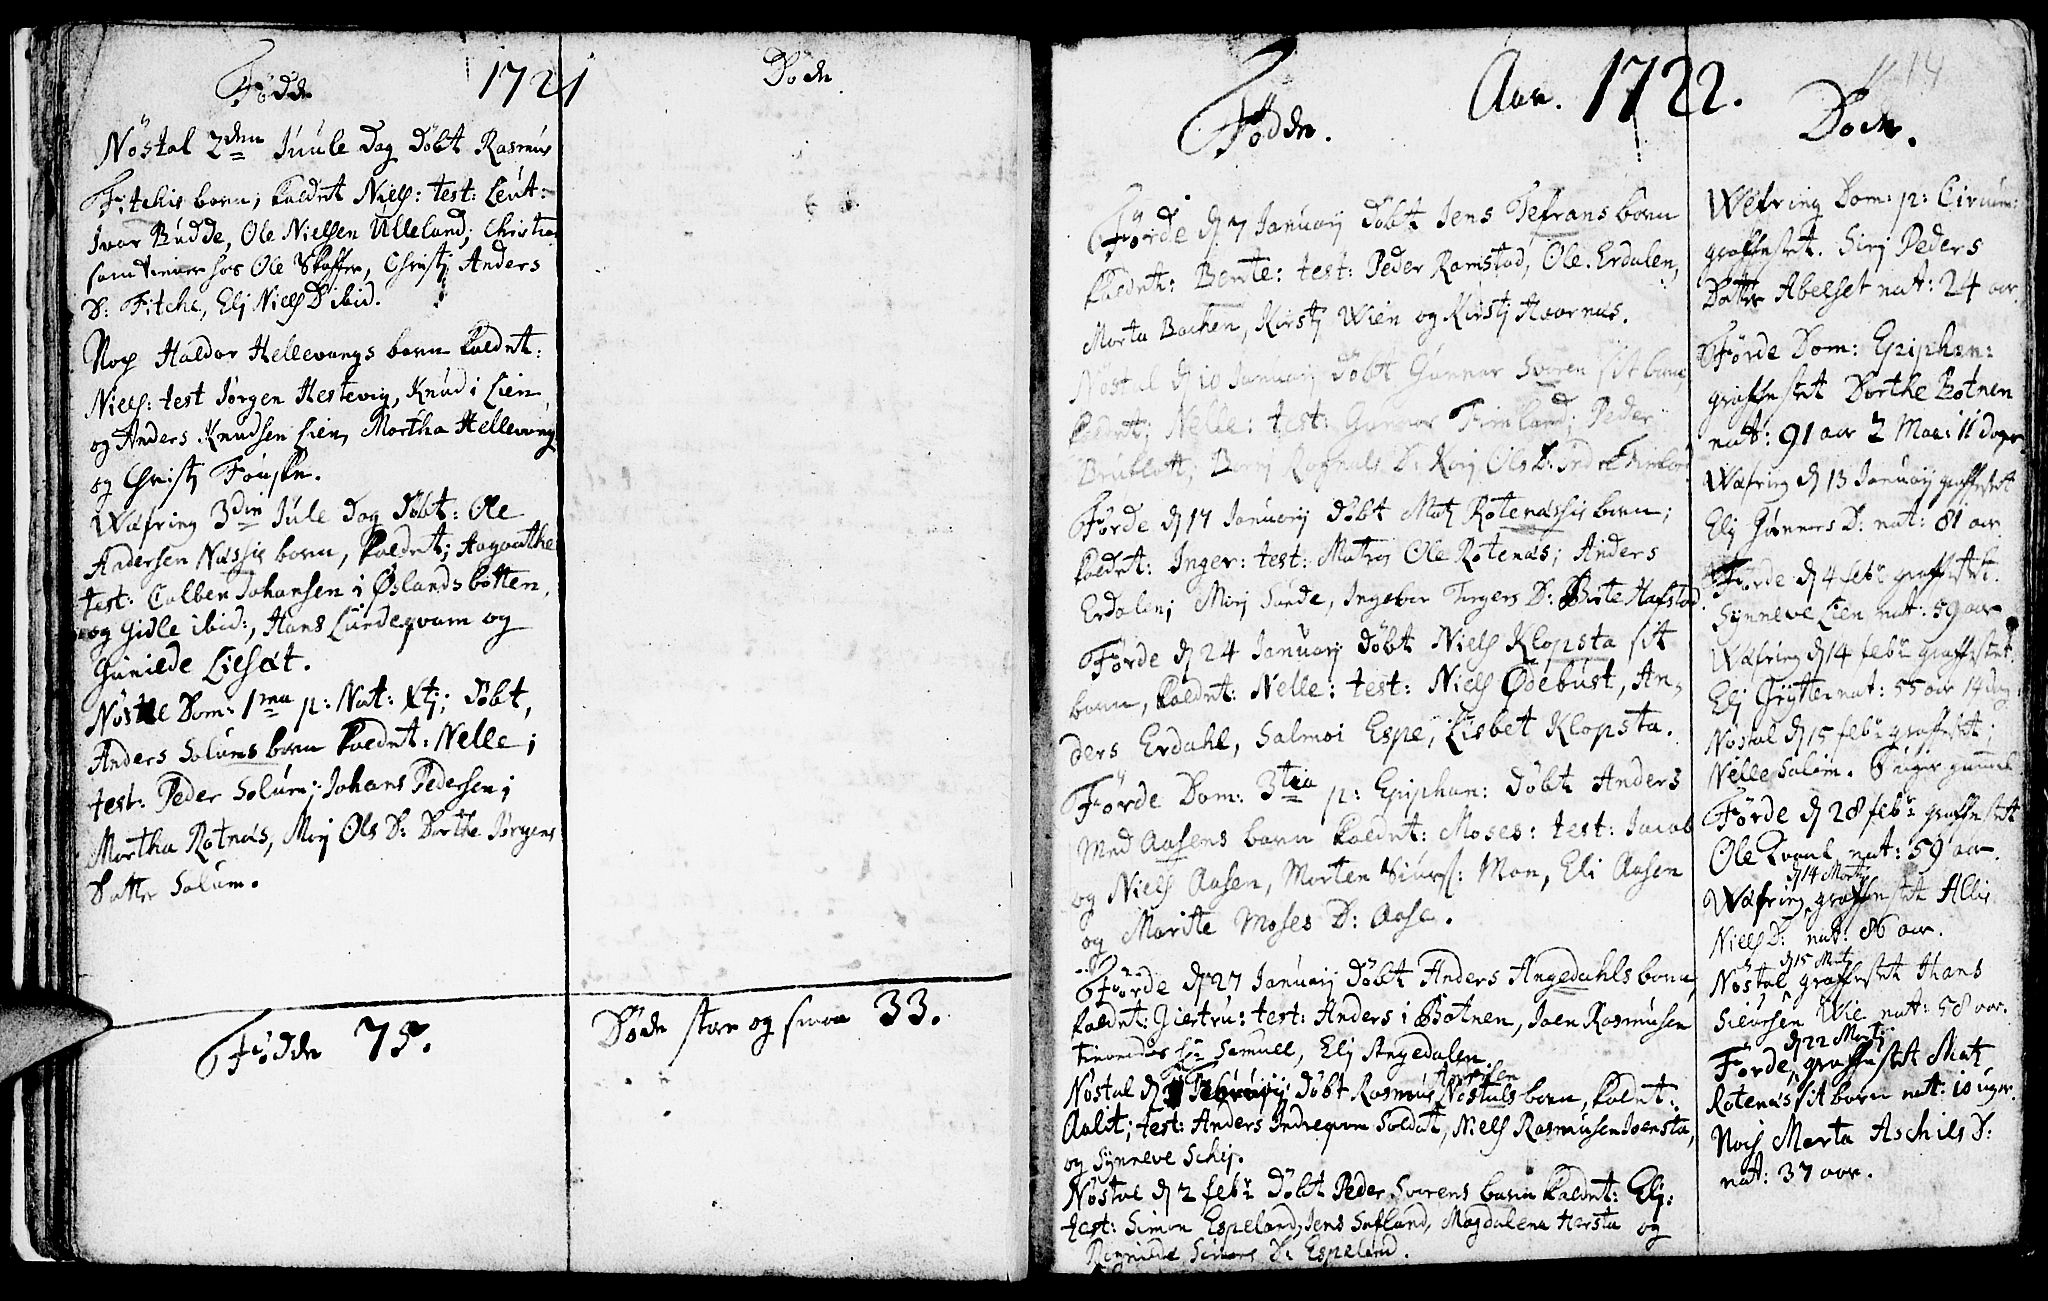 Födde 1721 Döde
Nöstal 2den Juule Dag döbt Rasmus
Fitchis barn; kaldet Niels: test: Leut:
Ivar Budde, Ole Nielsen Ulleland; Christian
som tiener hos Ole Skaffer, Christj Anders
D: Fitche, Elj Niels D ibid.
Nog Haldor Hellevangs barn kaldet:
Niels: test Jörgen Hestevig, Knud i Lien
og Anders Knudsen Lien, Martha Hellevang
og Christj Fouske.
Wæfring 3die Jule Dag döbt: Ole
Andersen Næssis barn, kaldet; Aagoathe
test: Colben Johansen i Öslandsbotten,
og Gidle ibid:, Hans Lundeqvam og
Gunilde Liesæt.
Nöstle Dom: 1ma p: Nat: Xtj; döbt,
Anders Solums barn kaldet: Nelle;
test: Peder Solum; Johans Pedersen;
Martha Rotnæs, Marj Ols D: Dorthe Jörgens
Datter Solum.
Födde 75.
Döde store og smaa 33.
14
Aar. 1722.
Födde.
Förde d 7 Januarij döbt Jens Tefrans barn
kaldet: Bente: test: Peder Ramstad, Ole. Erdalen,
Marta Bachen, Kirstj Wien og Kirstj Haarnæs.
Nöstal d 10 Januarij döbt Gunnar Svoren sit barn
kaldet; Nelle: test: Gunnar Fimland; Peder
Brublott; Borni Rognals D: Karj Ols D: Indre Fimland
Förde d 17 Januarij döbt Matz Rotenæssis barn;
kaldet: Inger: test: Matros Ole Rotenæs; Anders
Erdalen; Marj Sunde, Ingebor Torgers D: Brite Hafstad.
Förde d 24 Januarij döbt Niels Klopsta sit
barn, kaldet: Nelle: test: Niels Ödebust, An,
ders Erdahl, Salmoi Espe, Lisbet Klopsta.
Förde Dom: 3tia p: Epiphan: döbt Anders
Med Aasens barn kaldet: Moses: test: Jacob
og Niels Aasen, Morten Siurs: Mon, Eli Aasen
og Marite Moses D: Aase.
Förde d 27 Januarij döbt Anders Angedahls barn
kaldet: Giertru: test: Anders i Botnen, Joen Rasmusen
tienendes hr Samuel, Elj Angedalen
Nöstal d Februarij döbt Rasmus Nöstals barn, kaldet:
Aalit; test: Anders Indreqvam Soldat, Niels Rasmusen Joensta,
og Synneve Schej.
Nöstal d 2 febr döbt Peder Svorens barn kaldet: Elj:
test: Simon Espeland, Jens Sofland, Magdalena Hersta og
Ragnilde Simons D: Espeland.
Döde.
Wefring Dom: p: Circum:
graffæstet. Sirj Peders
Datter Abelset nat: 24 aar.
Förde Dom: Epiphan:
graffæstet Dorthe Botnen
nat: 91 aar 2 Maa: 11 dage.
Wæfring d 13 Januarij graffæstet
Elj Gunners D: nat: 81 aar
Förde d 4 febr graffæstet.
Synneve Lien nat: 59 aar
Wæfring d 14 febr graffæstet.
Elj Grytte nat: 55 aar 14 dag:
Nöstal d 15 febr graffæstet;
Nelle Solem. 5 uger gammel
Förde d 28 febr graffæstet
Ole Kvaal nat: 59 aar.
d 14 Martj
Wæfring graffæstet Allis
Niels D: nat: 86 aar.
d 15 Martj
Nöstal graffæstet Hans
Siursen Wie nat: 58 aar.
d 22 Martj
Förde, graffæstet Matz
Rotenæs sit barn nat: 10 uger.
Nog Marta Aschils D:
nat: 37 aar.